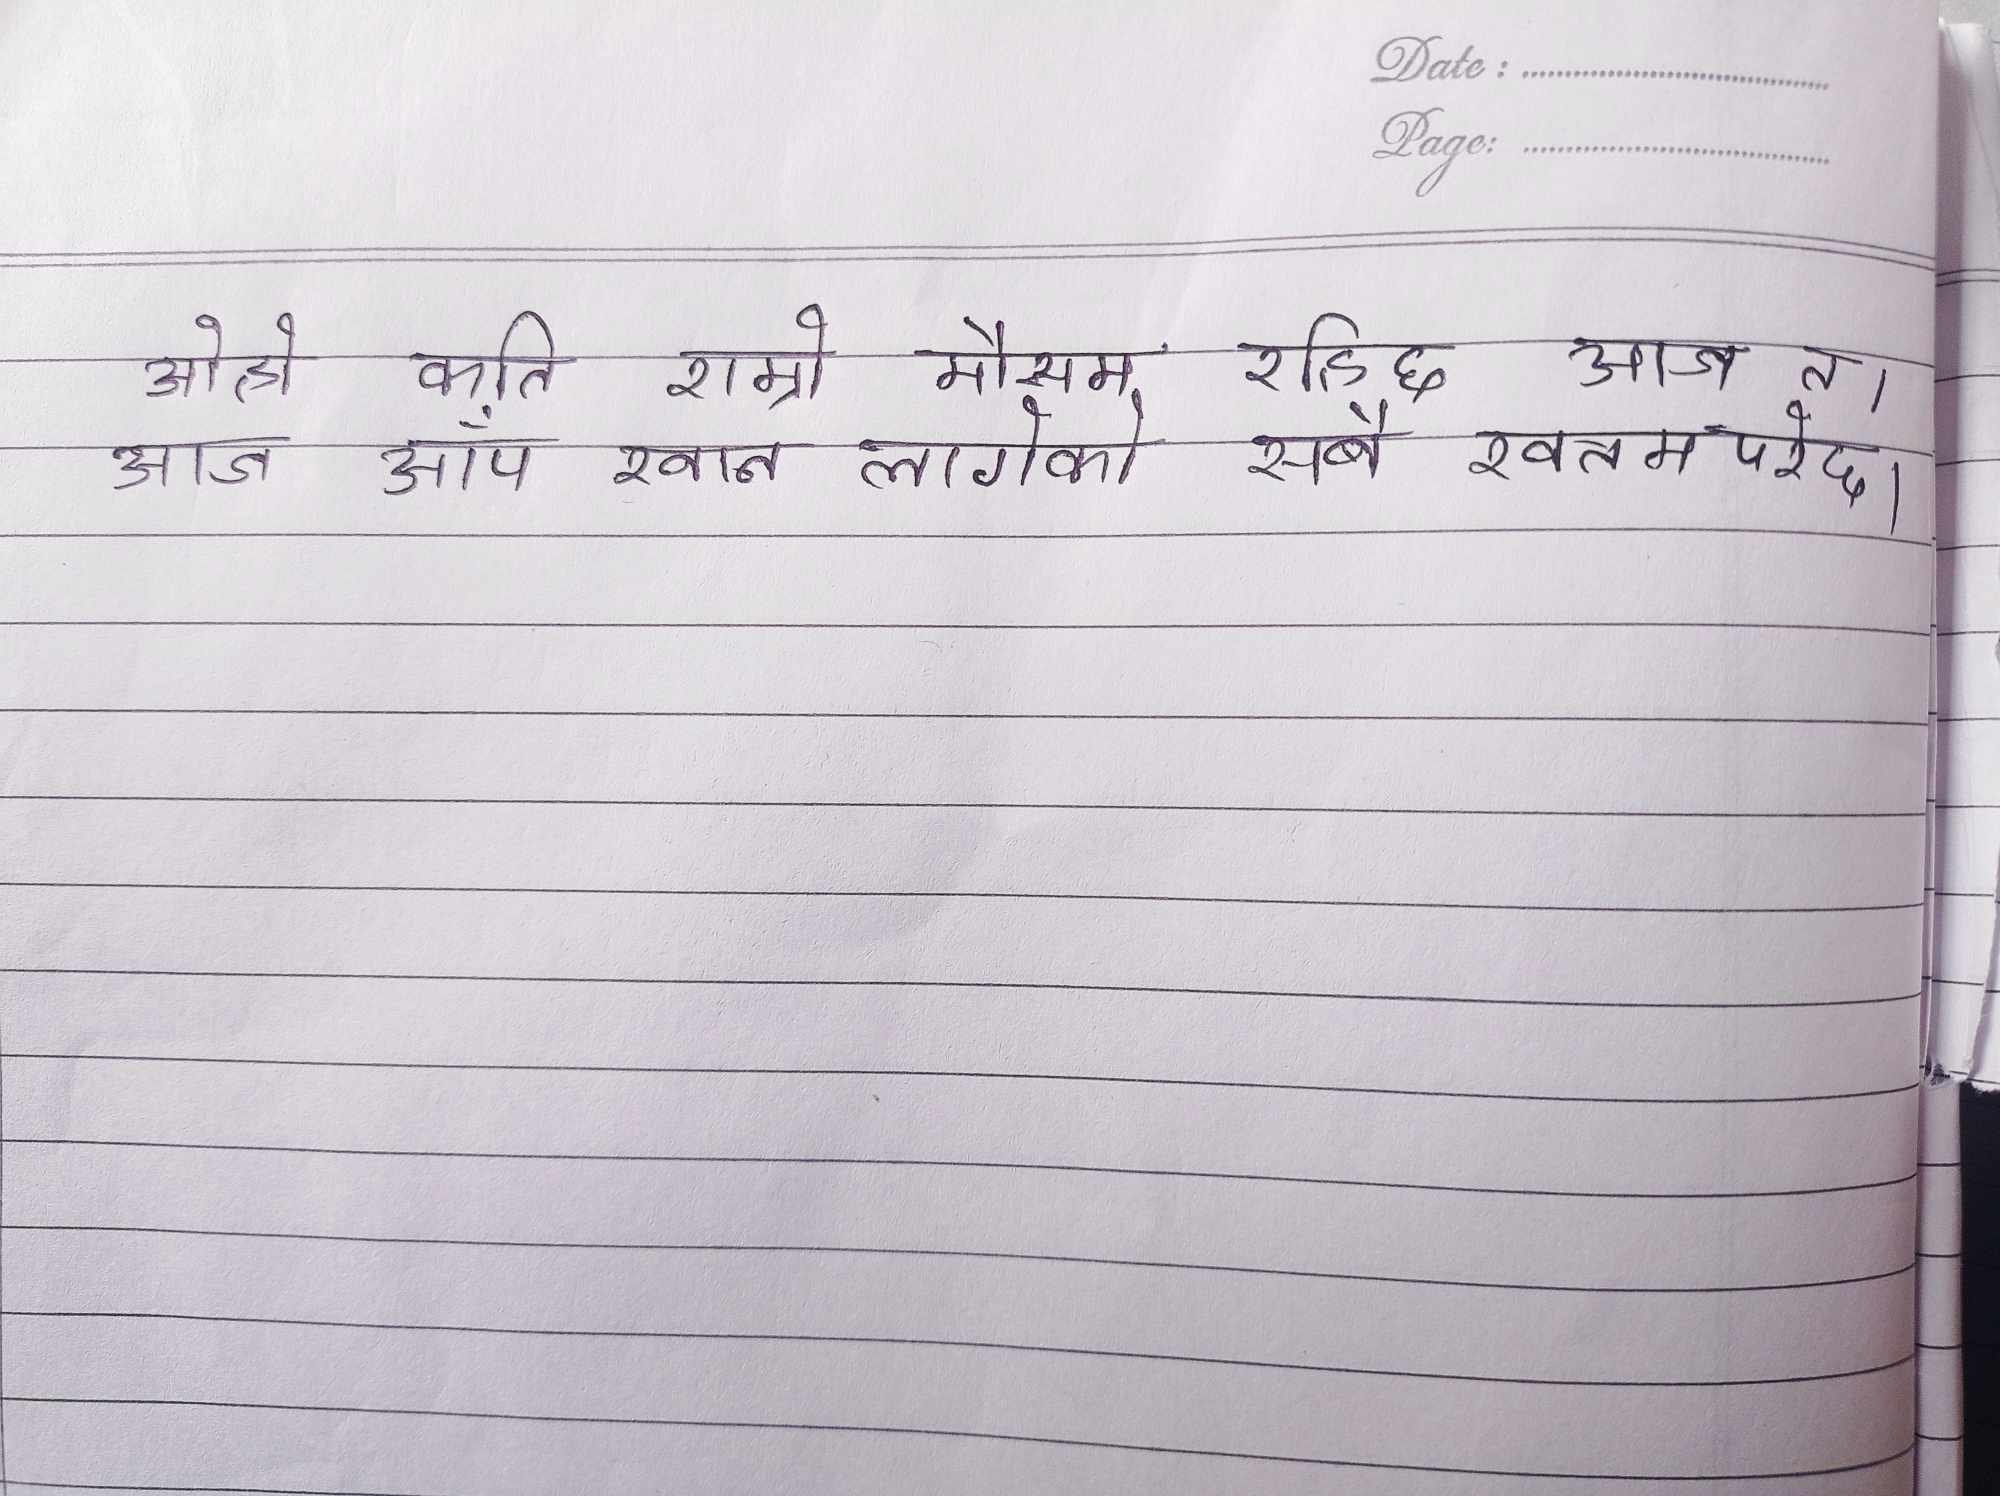 Date :
Page:
ओहो कति राम्रो मौसम रहिछ आज त।
आज आँप खान लागेको सबै खतम परेछ।